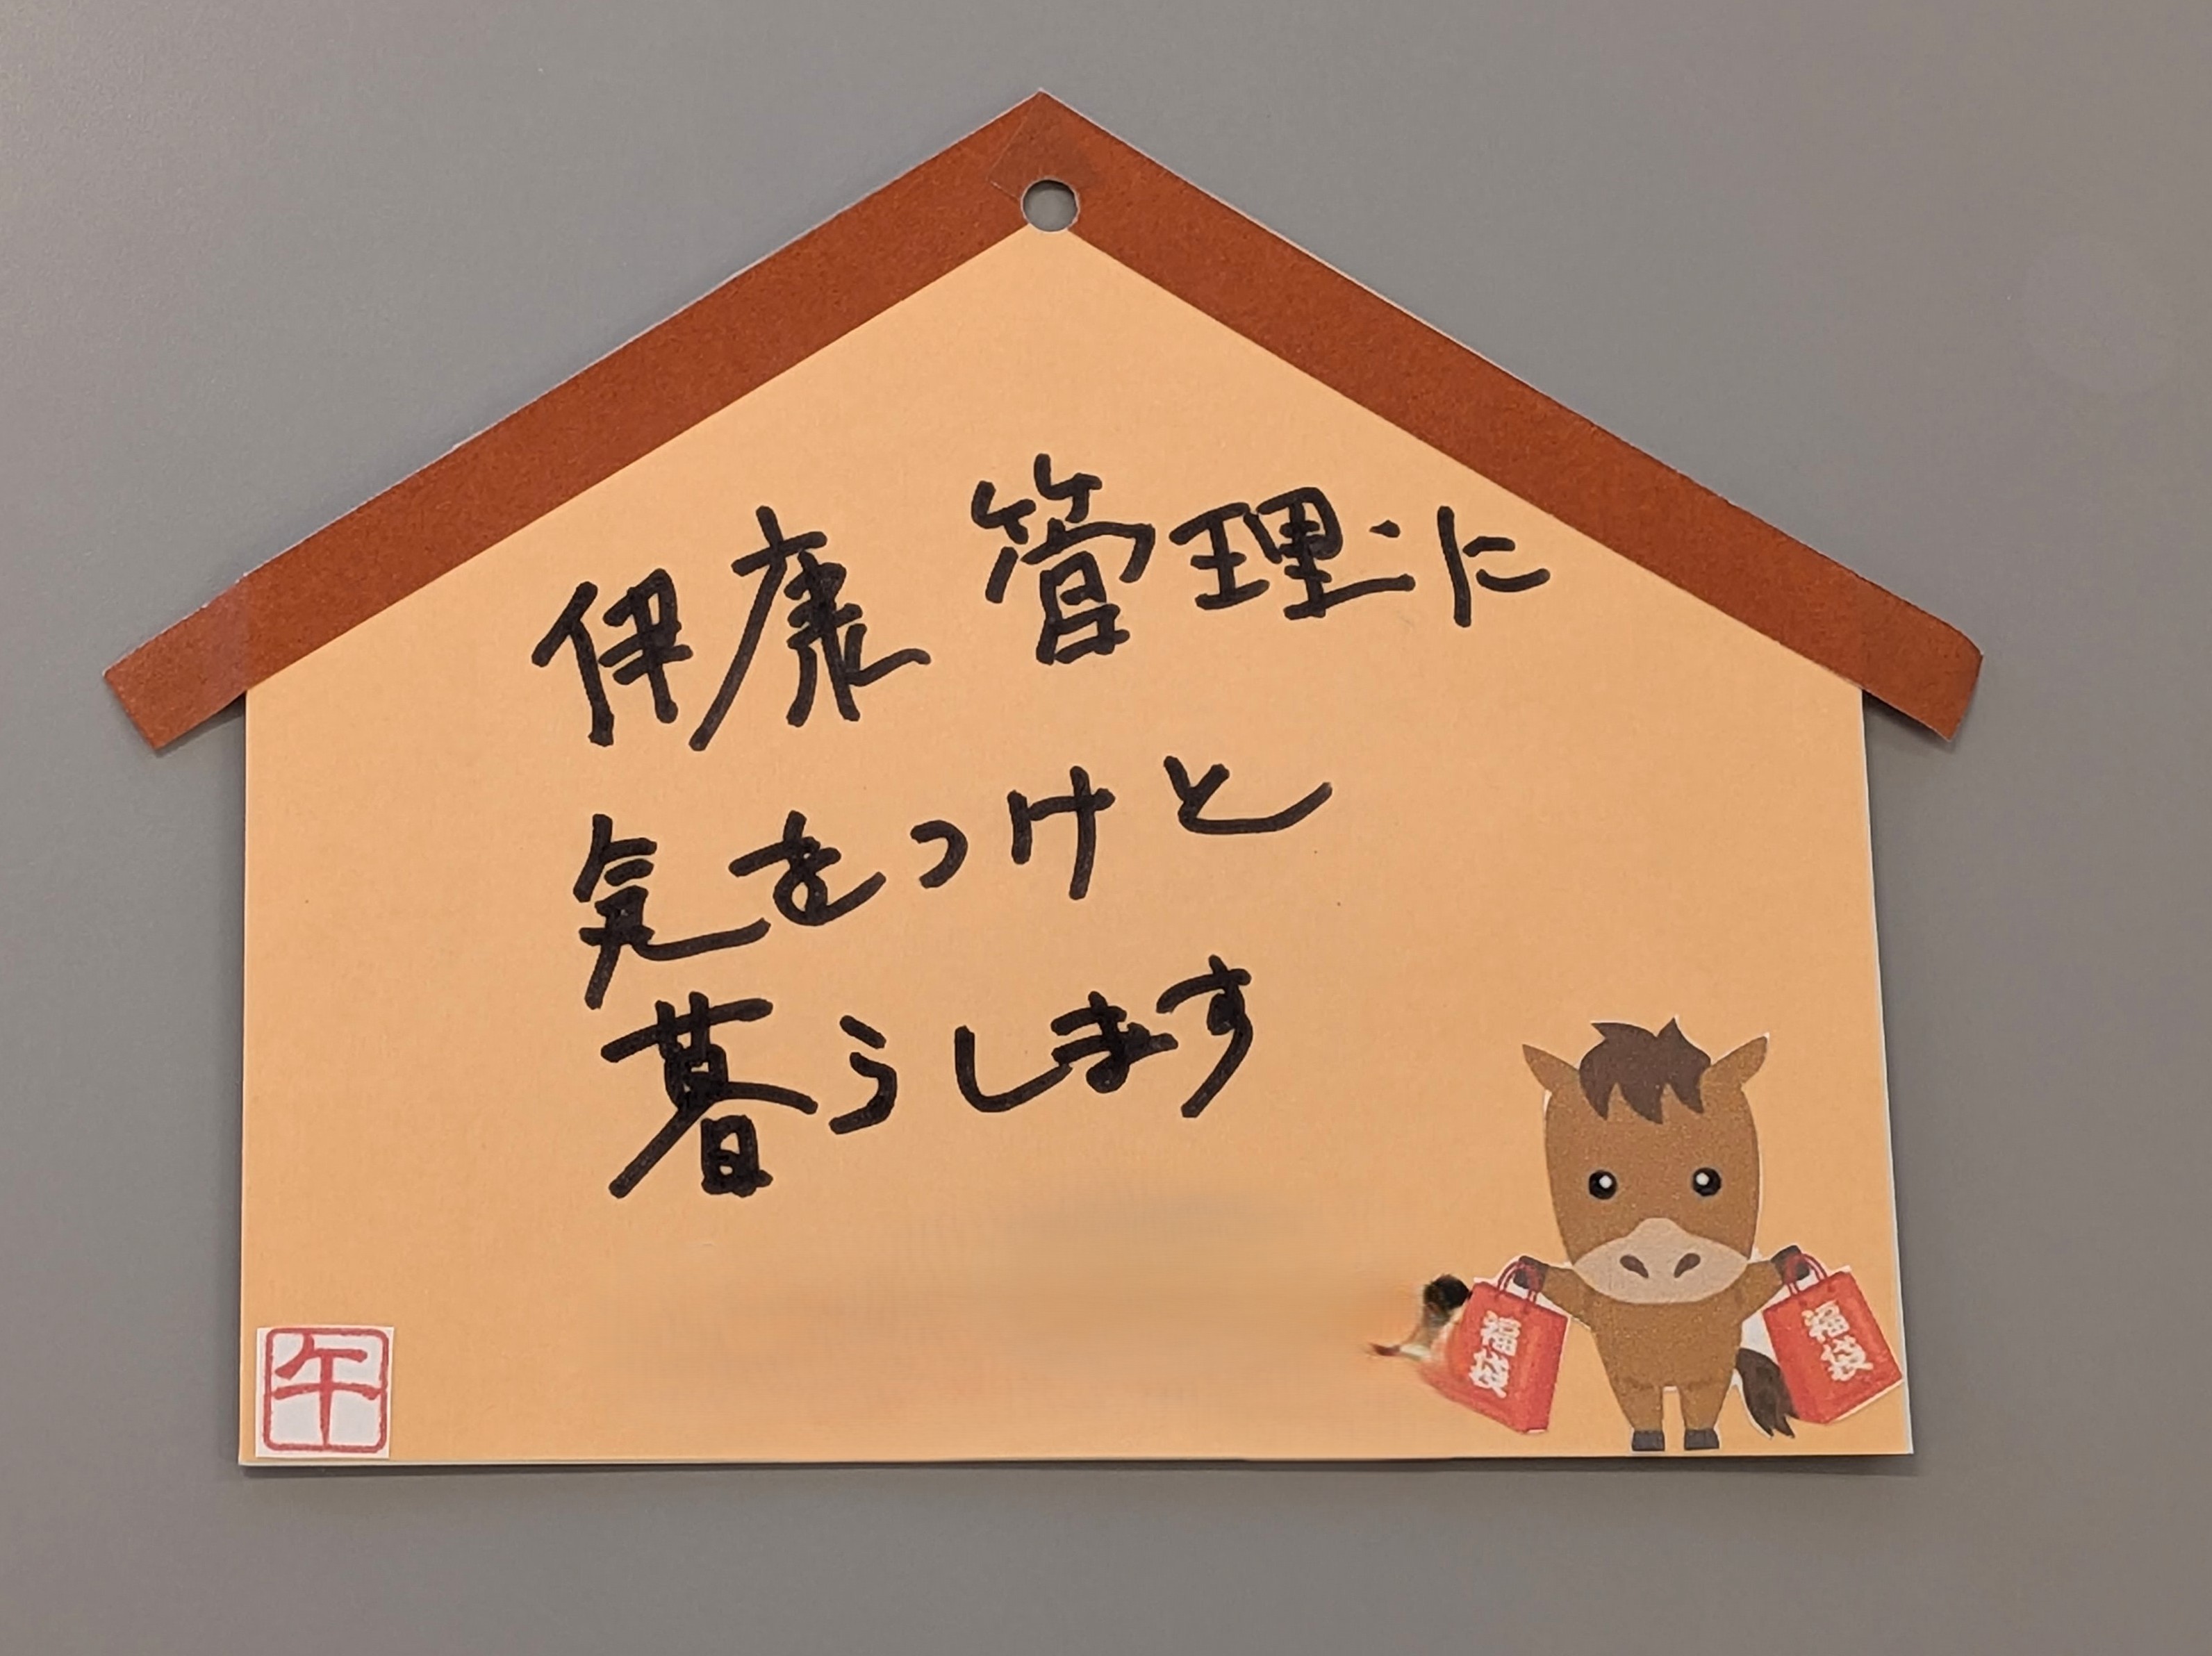 健康管理に
気をつけと
暮らします
午
福袋
福袋